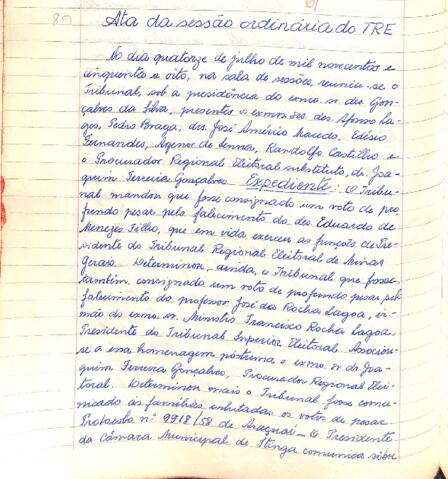 80
Ata da sessão ordinária do TRE
No dia quatorze de julho de mil novecentos e
cinquenta e oito, na sala de sessões, reuniu-se o
Tribunal, sob a presidência do exmo. sr. des. Gon-
çalves da Silva, presentes os exmos. srs. des. Afonso La-
ges, Pedro Braga, drs. José Américo Macedo, Edésio
Fernandes, Agenor de Senna, Randolfo Castilho e
o Procurador Regional Eleitoral substituto, dr. Joa-
quim Ferreira Gonçalves. Expediente: O Tribu-
nal mandou que fosse consignado um voto de pro-
fundo pesar pelo falecimento do des. Eduardo de
Menezes Filho, que em vida exerceu as funções de Pre-
sidente do Tribunal Regional Eleitoral de Minas
Gerais. Determinou, ainda, o Tribunal que fosse,
também, consignado um voto de profundo pesar pelo
falecimento do professor José da Rocha Lagoa, ir-
mão do exmo. sr. Ministro Francisco Rocha Lagoa,
Presidente do Tribunal Superior Eleitoral. Associou-
se a essa homenagem póstuma o exmo. sr. dr. Joa-
quim Ferreira Gonçalves, Procurador Regional Elei-
toral. Determinou mais o Tribunal fosse comu-
nicado às famílias enlutadas os votos de pesar.
Protocolo nº 9918/58 de Araçuaí - O Presidente
da Câmara Municipal de Itinga comunica sôbre